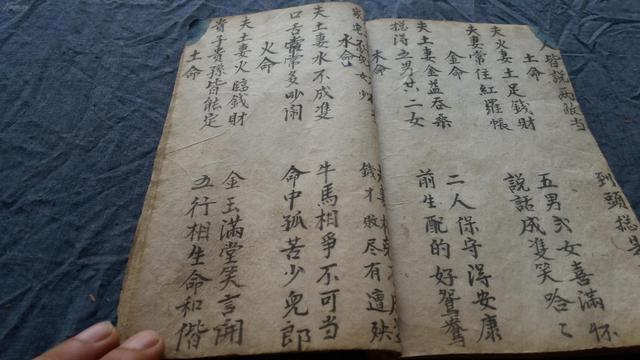 人皆說兩敵当 到頭総是
土命
夫火妻土足錢財 五男弍女喜滿怀
夫妻常住紅羅帳 說話成雙笑哈〻
金命
夫土妻金益吞桑 二人保守得安康
総得五男共二女 前生配的好鴛鴦
木命
錢才敗尽有遭殃
水命
夫土妻水不成雙 牛馬相爭不可当
口舌常常多吵鬧 命中孤苦少兒郎
火命
夫土妻火臨錢財 金玉滿堂笑言開
貴子貴孫皆能定 五行相生命和偕
土命